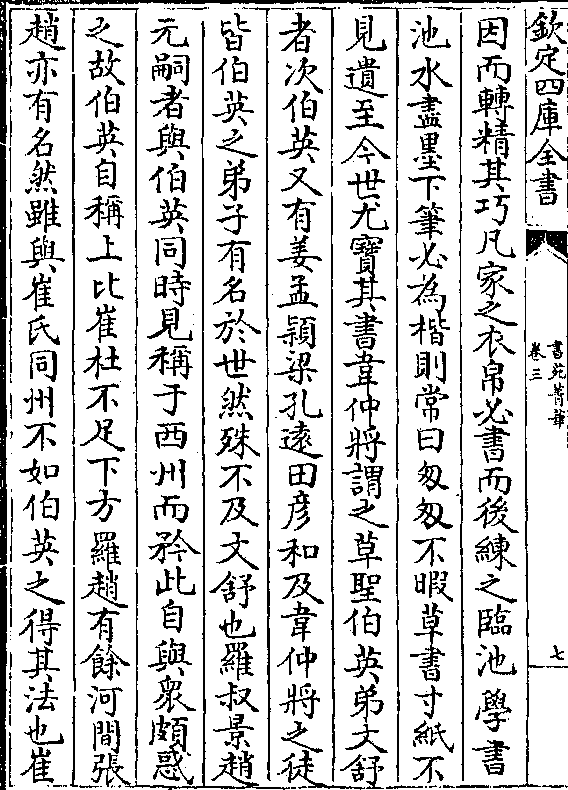 欽定四庫全書
書苑菁華
卷三
七
因而轉精其巧凡家之衣帛必書而後練之臨池學書
池水盡墨下筆必為楷則常曰匆匆不暇草書寸紙不
見遺至今世尤寶其書韋仲將謂之草聖伯英弟文舒
者次伯英又有姜孟頴梁孔逺田彦和及韋仲將之徒
皆伯英之弟子有名於世然殊不及文舒也羅叔景趙
元嗣者與伯英同時見稱于西州而矜此自與衆頗惑
之故伯英自稱上比崔杜不足下方羅趙有餘河間張
趙亦有名然雖與崔氏同州不如伯英之得其法也崔